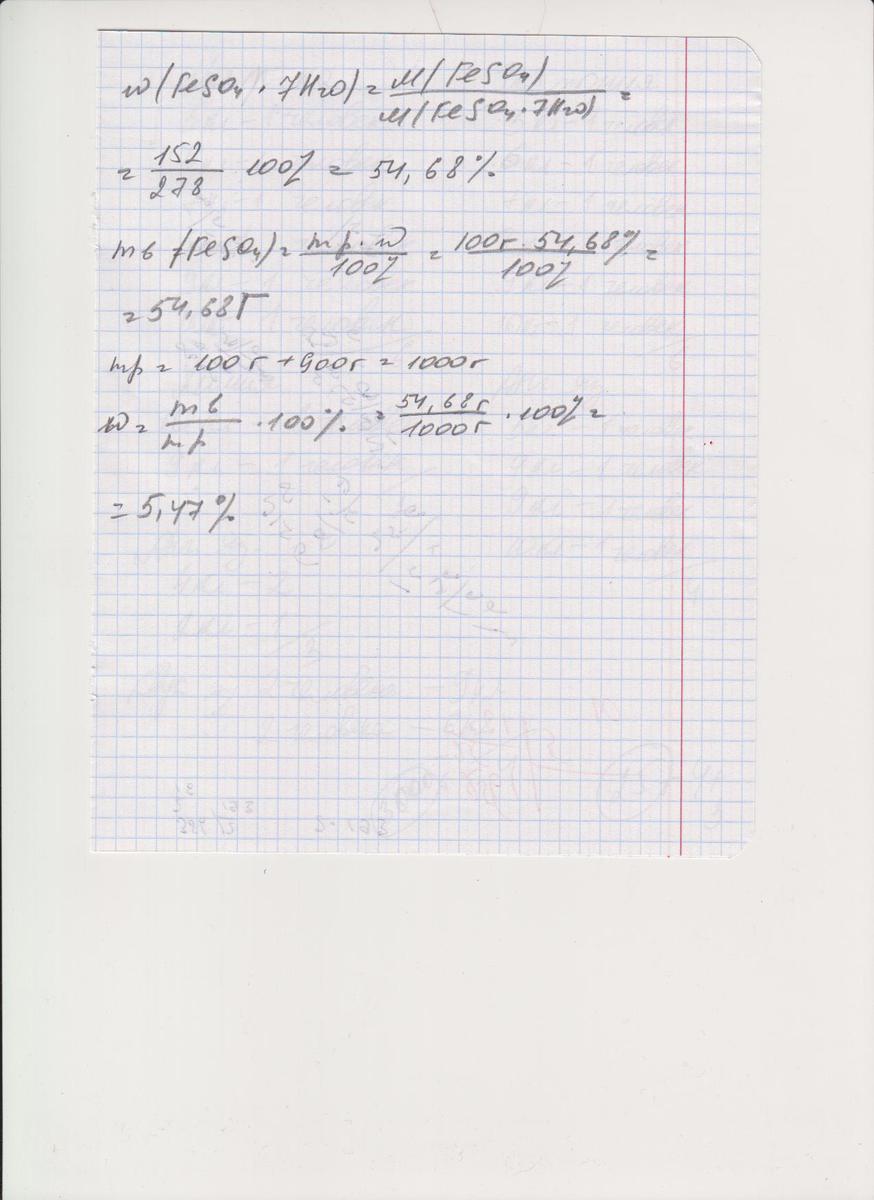 w(FeSO₄ · 7H₂O) = M(FeSO₄) / M(FeSO₄·7H₂O) =
= 152/278 100% = 54,68%
mв (FeSO₄) = mр·w / 100% = 100г · 54,68% / 100% =
= 54,68г
mр = 100г + 900г = 1000г
w = mв / mр · 100% = 54,68г / 1000г · 100% =
= 5,47%